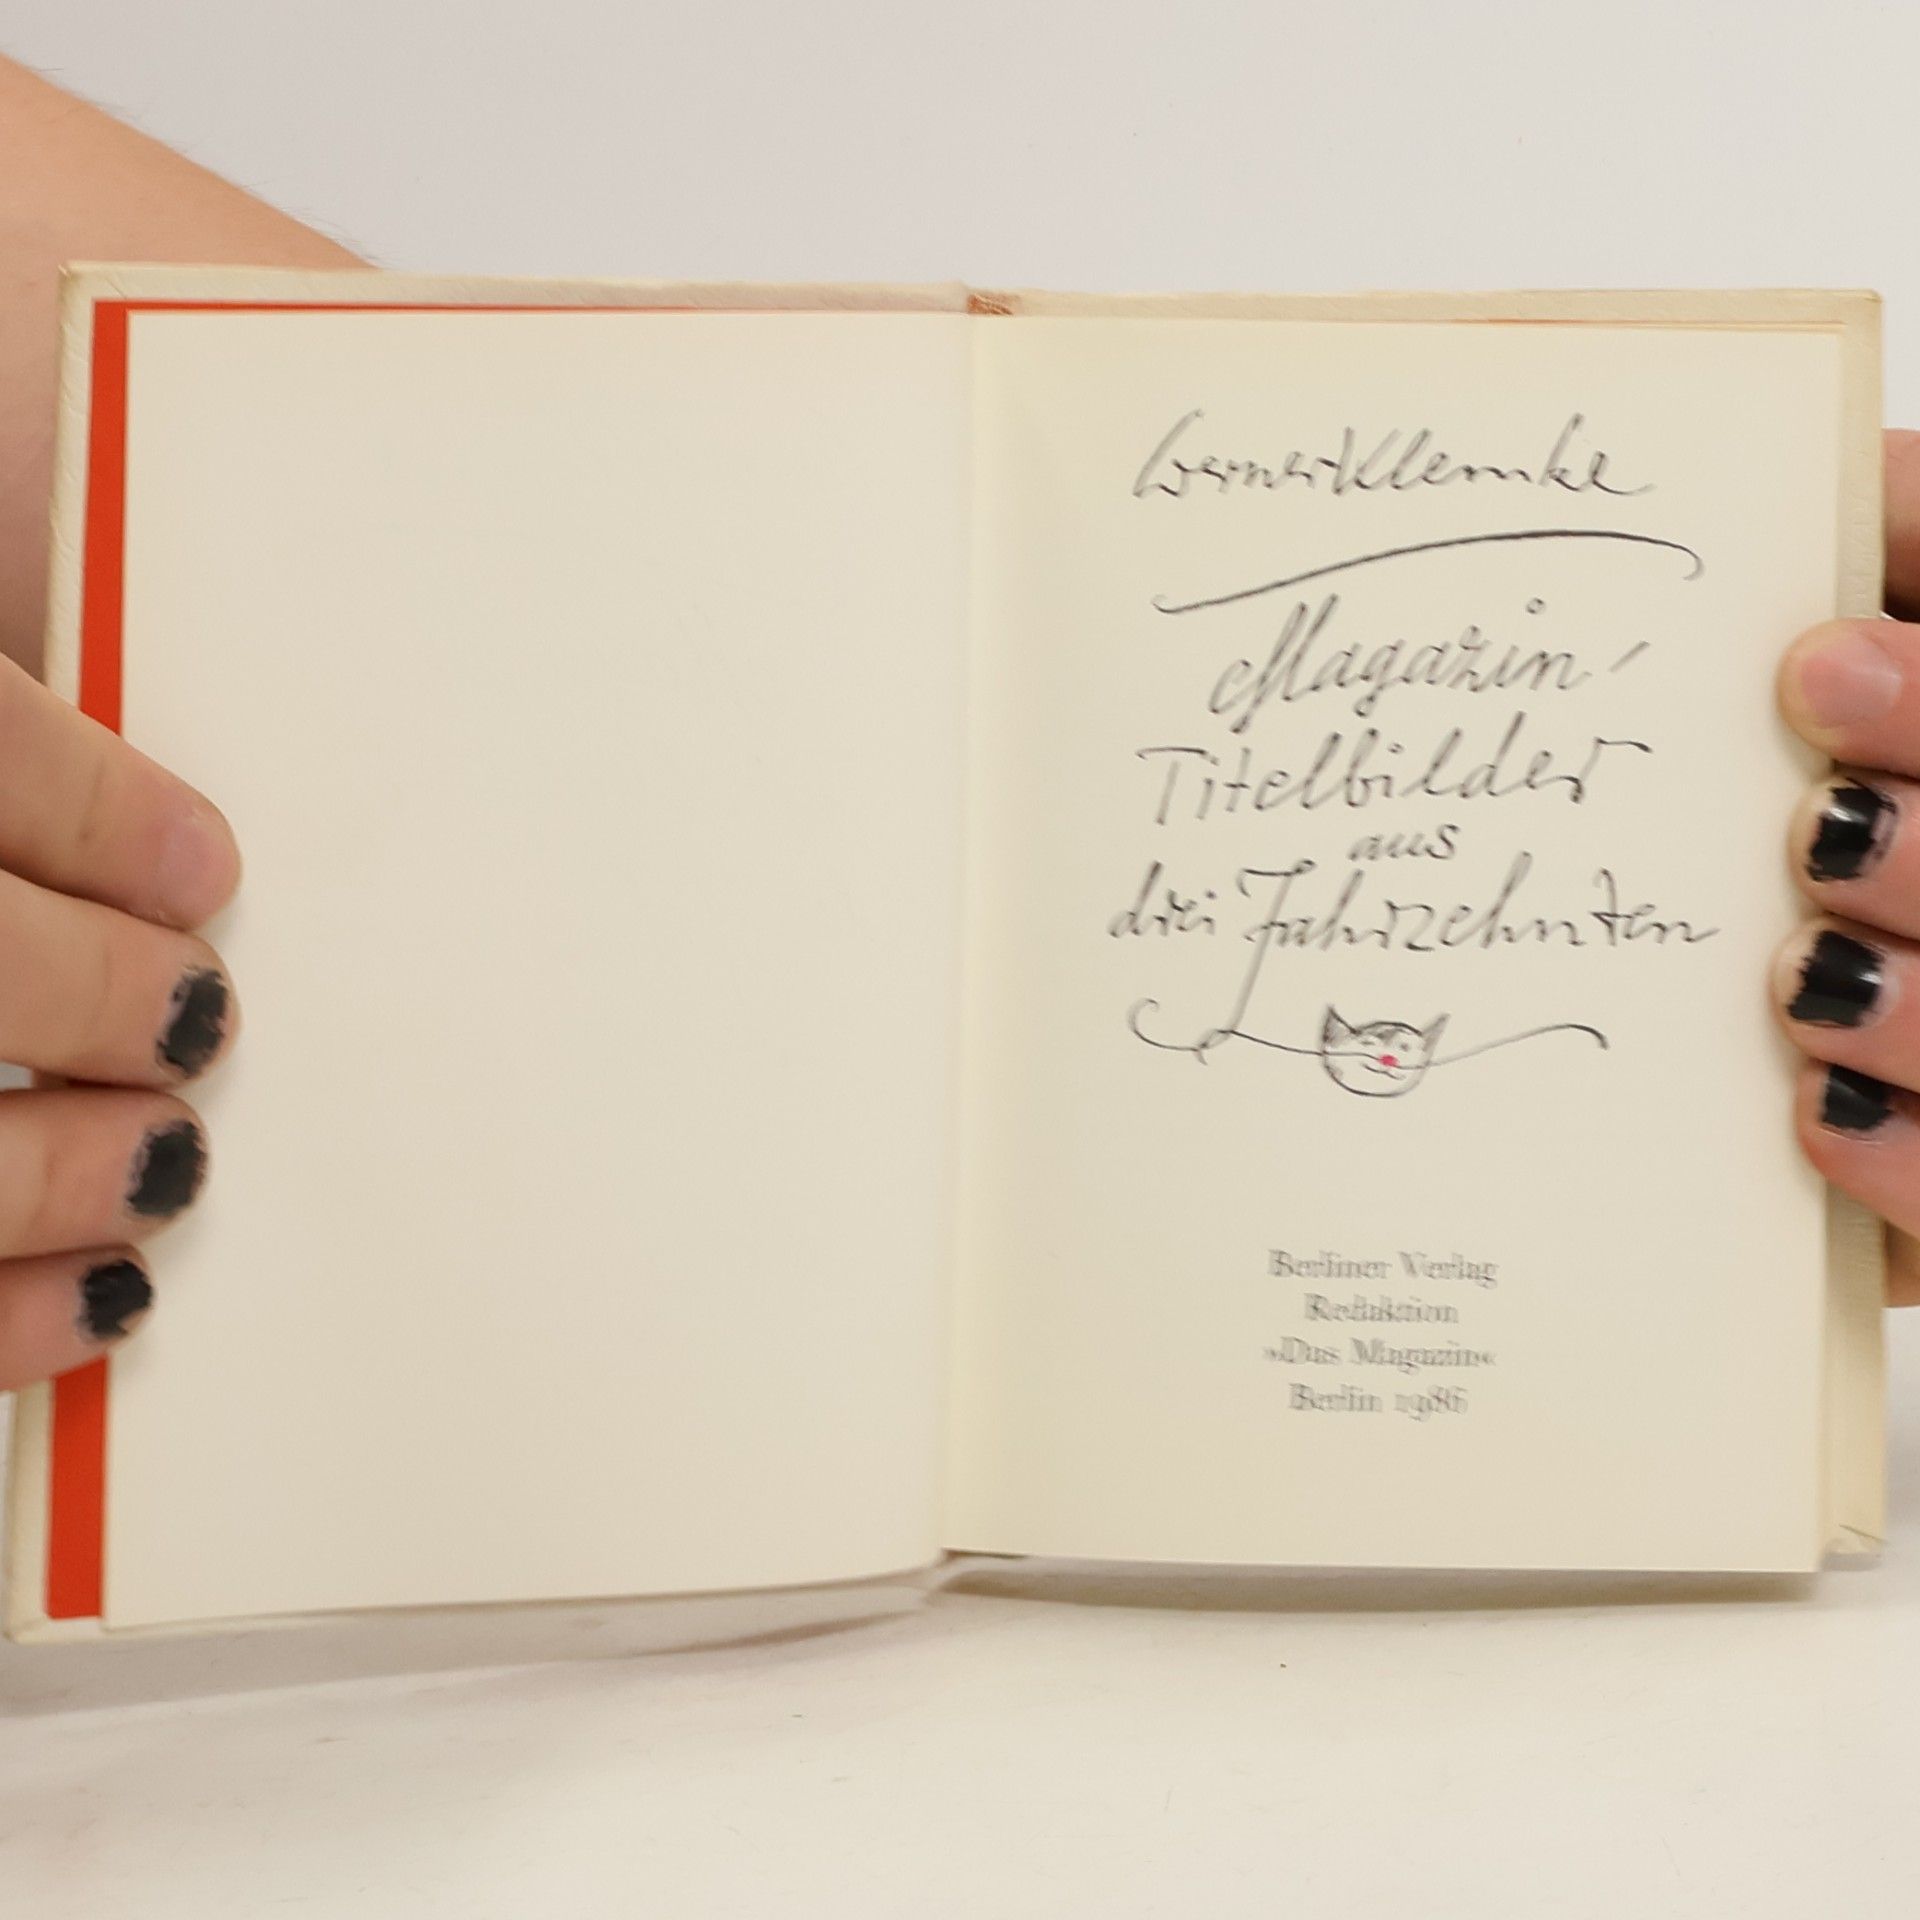 Werner Klemke
Magazin-
Titelbilder
aus
drei Jahrzehnten
Berliner Verlag
Redaktion
»Das Magazin«
Berlin 1986